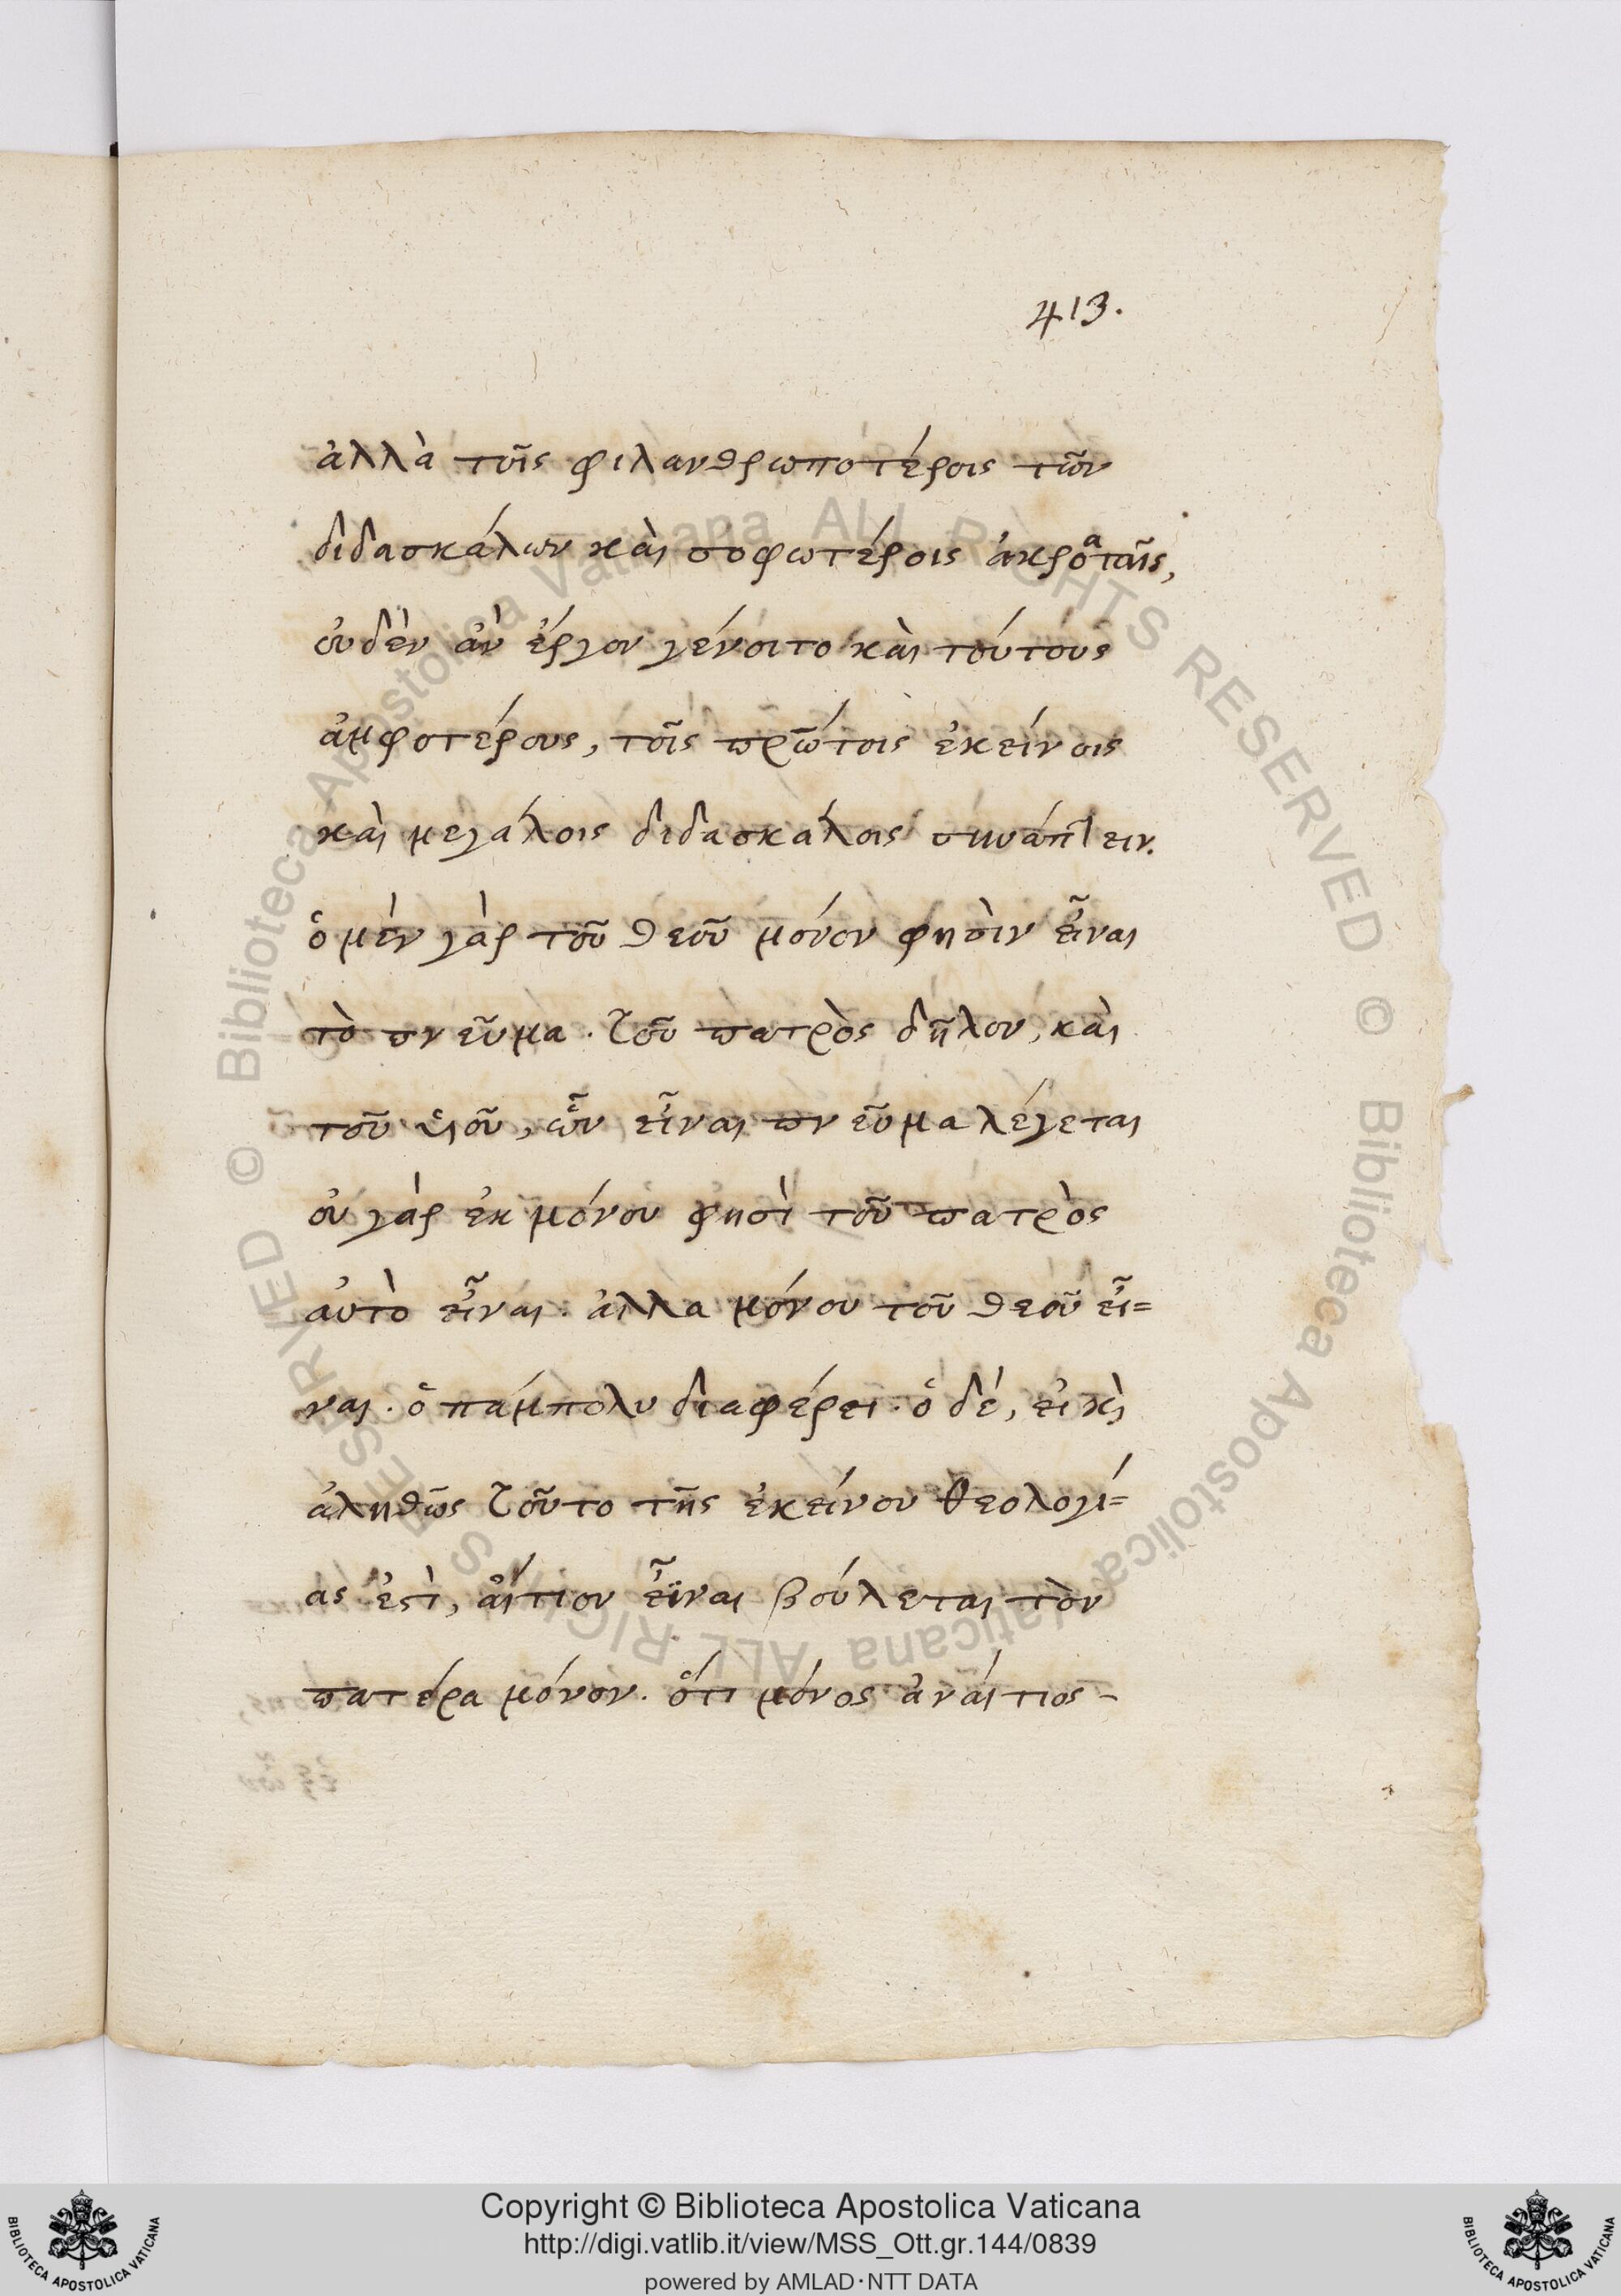 413.
ἀλλὰ τοῖς φιλανθρωποτέροις τῶν
διδασκάλων καὶ σοφωτέροις ἀκροαταῖς,
οὐδὲν ἂν ἔργον γένοιτο καὶ τούτους
ἀμφοτέρους, τοῖς πρώτοις ἐκείνοις
καὶ μεγάλοις διδασκάλοις συνάπτειν.
ὁ μὲν γὰρ τοῦ θεοῦ μόνον φησὶν εἶναι
τὸ πνεῦμα. τοῦ πατρὸς δῆλον, καὶ
τοῦ υἱοῦ, ὧν εἶναι πνεῦμα λέγεται
οὐ γὰρ ἐκ μόνου φησὶ τοῦ πατρὸς
αὐτὸ εἶναι. ἀλλα μόνου τοῦ θεοῦ εἶ=
ναι. ὃ πάμπολυ διαφέρει. ὁ δέ, εἰ κὶ
ἀληθῶς τοῦτο τῆς ἐκείνου θεολογί=
ας ἐστὶ, αἴτιον εἶναι βούλεται τὸν
πατέρα μόνον. ὅτι μόνος ἀναίτιος -
© Biblioteca Apostolica Vaticana ALL RIGHTS RESERVED © Biblioteca Apostolica Vaticana ALL RIGHTS RESERVED
Copyright © Biblioteca Apostolica Vaticana
http://digi.vatlib.it/view/MSS_Ott.gr.144/0839
powered by AMLAD·NTT DATA
BIBLIOTECA APOSTOLICA VATICANA
BIBLIOTECA APOSTOLICA VATICANA